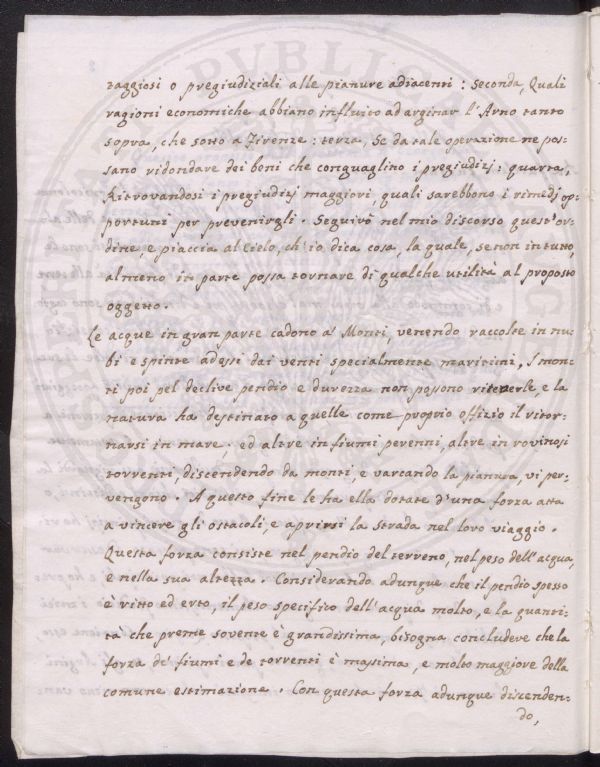 taggiosi o pregiudiziali alle pianure adiacenti: Seconda, Quali
ragioni economiche abbiano influito ad arginar l'Arno tanto
sopra, che sotto a Firenze: terza, Se da tale operazione ne pos-
sano ridondare dei beni che conguaglino i pregiudizj: quarta,
Ritrovandosi i pregiudizj maggiori, quali sarebbono i rimedj op-
portuni per prevenirgli. Seguirò nel mio discorso quest'or-
dine, e piaccia al Cielo, ch'io dica cosa, la quale, se non in tutto,
almeno in parte possa tornare di qualche utilità al proposto
oggetto.
Le acque in gran parte cadono a' Monti, venendo raccolte in nu-
bi e spinte ad essi dai venti specialmente marittimi. I mon-
ti poi pel declive pendio e durezza non possono ritenerle, e la
natura ha destinato a quelle come proprio offizio il ritor-
narsi in mare; ed altre in fiumi perenni, altre in rovinosi
torrenti, discendendo da monti, e varcando la pianura, vi per-
vengono. A questo fine le ha ella dotate d'una forza atta
a vincere gli ostacoli, e aprirsi la strada nel loro viaggio.
Questa forza consiste nel pendio del terreno, nel peso dell'acqua,
e nella sua altezza. Considerando adunque che il pendio spesso
è ritto ed erto, il peso specifico dell'acqua molto, e la quanti-
tà che preme sovente è grandissima, bisogna concludere che la
forza de' fiumi e de torrenti è massima, e molto maggiore della
comune estimazione. Con questa forza adunque discenden-
do,